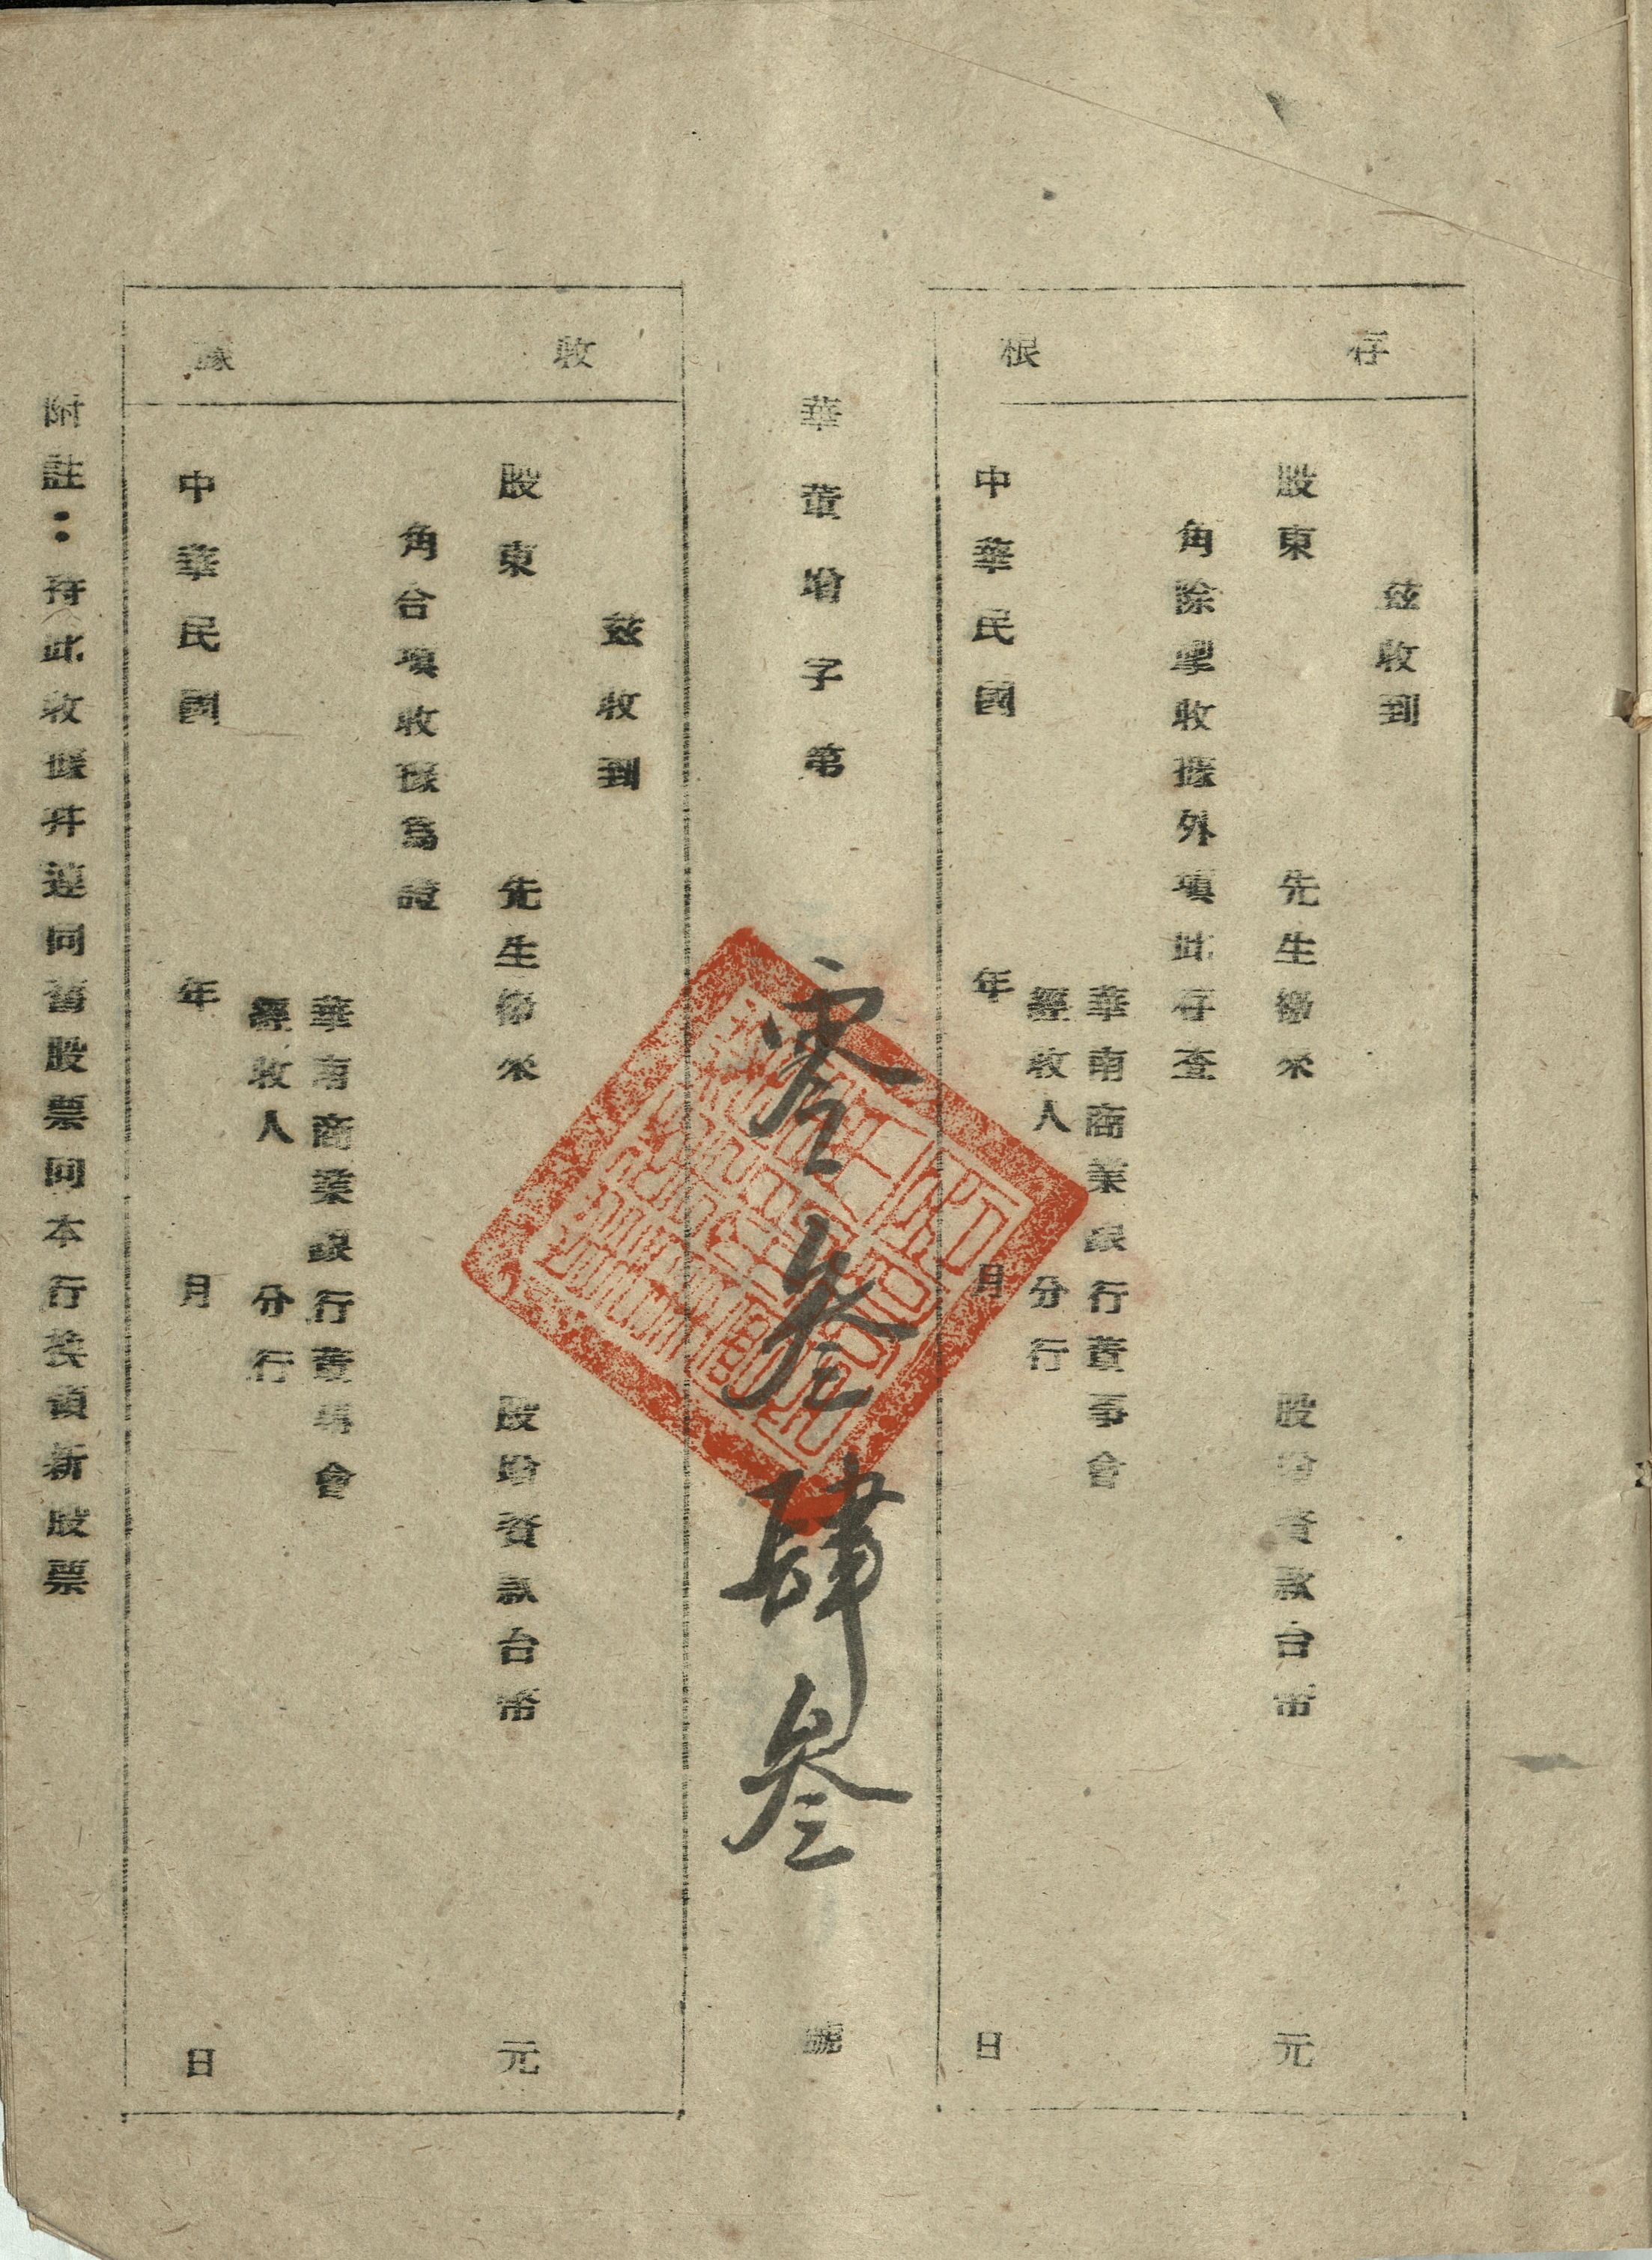 存根
茲收到
股東　先生繳來　股增資款台幣　元
角除掣收據外填此存查
華南商業銀行董事會
經收人　分行
中華民國　年　月　日
華董增字第零叁肆叁號
收據
茲收到
股東　先生繳來　股增資款台幣　元
角合填收據為證
華南商業銀行董事會
經收人　分行
中華民國　年　月　日
附註：持此收據并連同舊股票向本行換領新股票